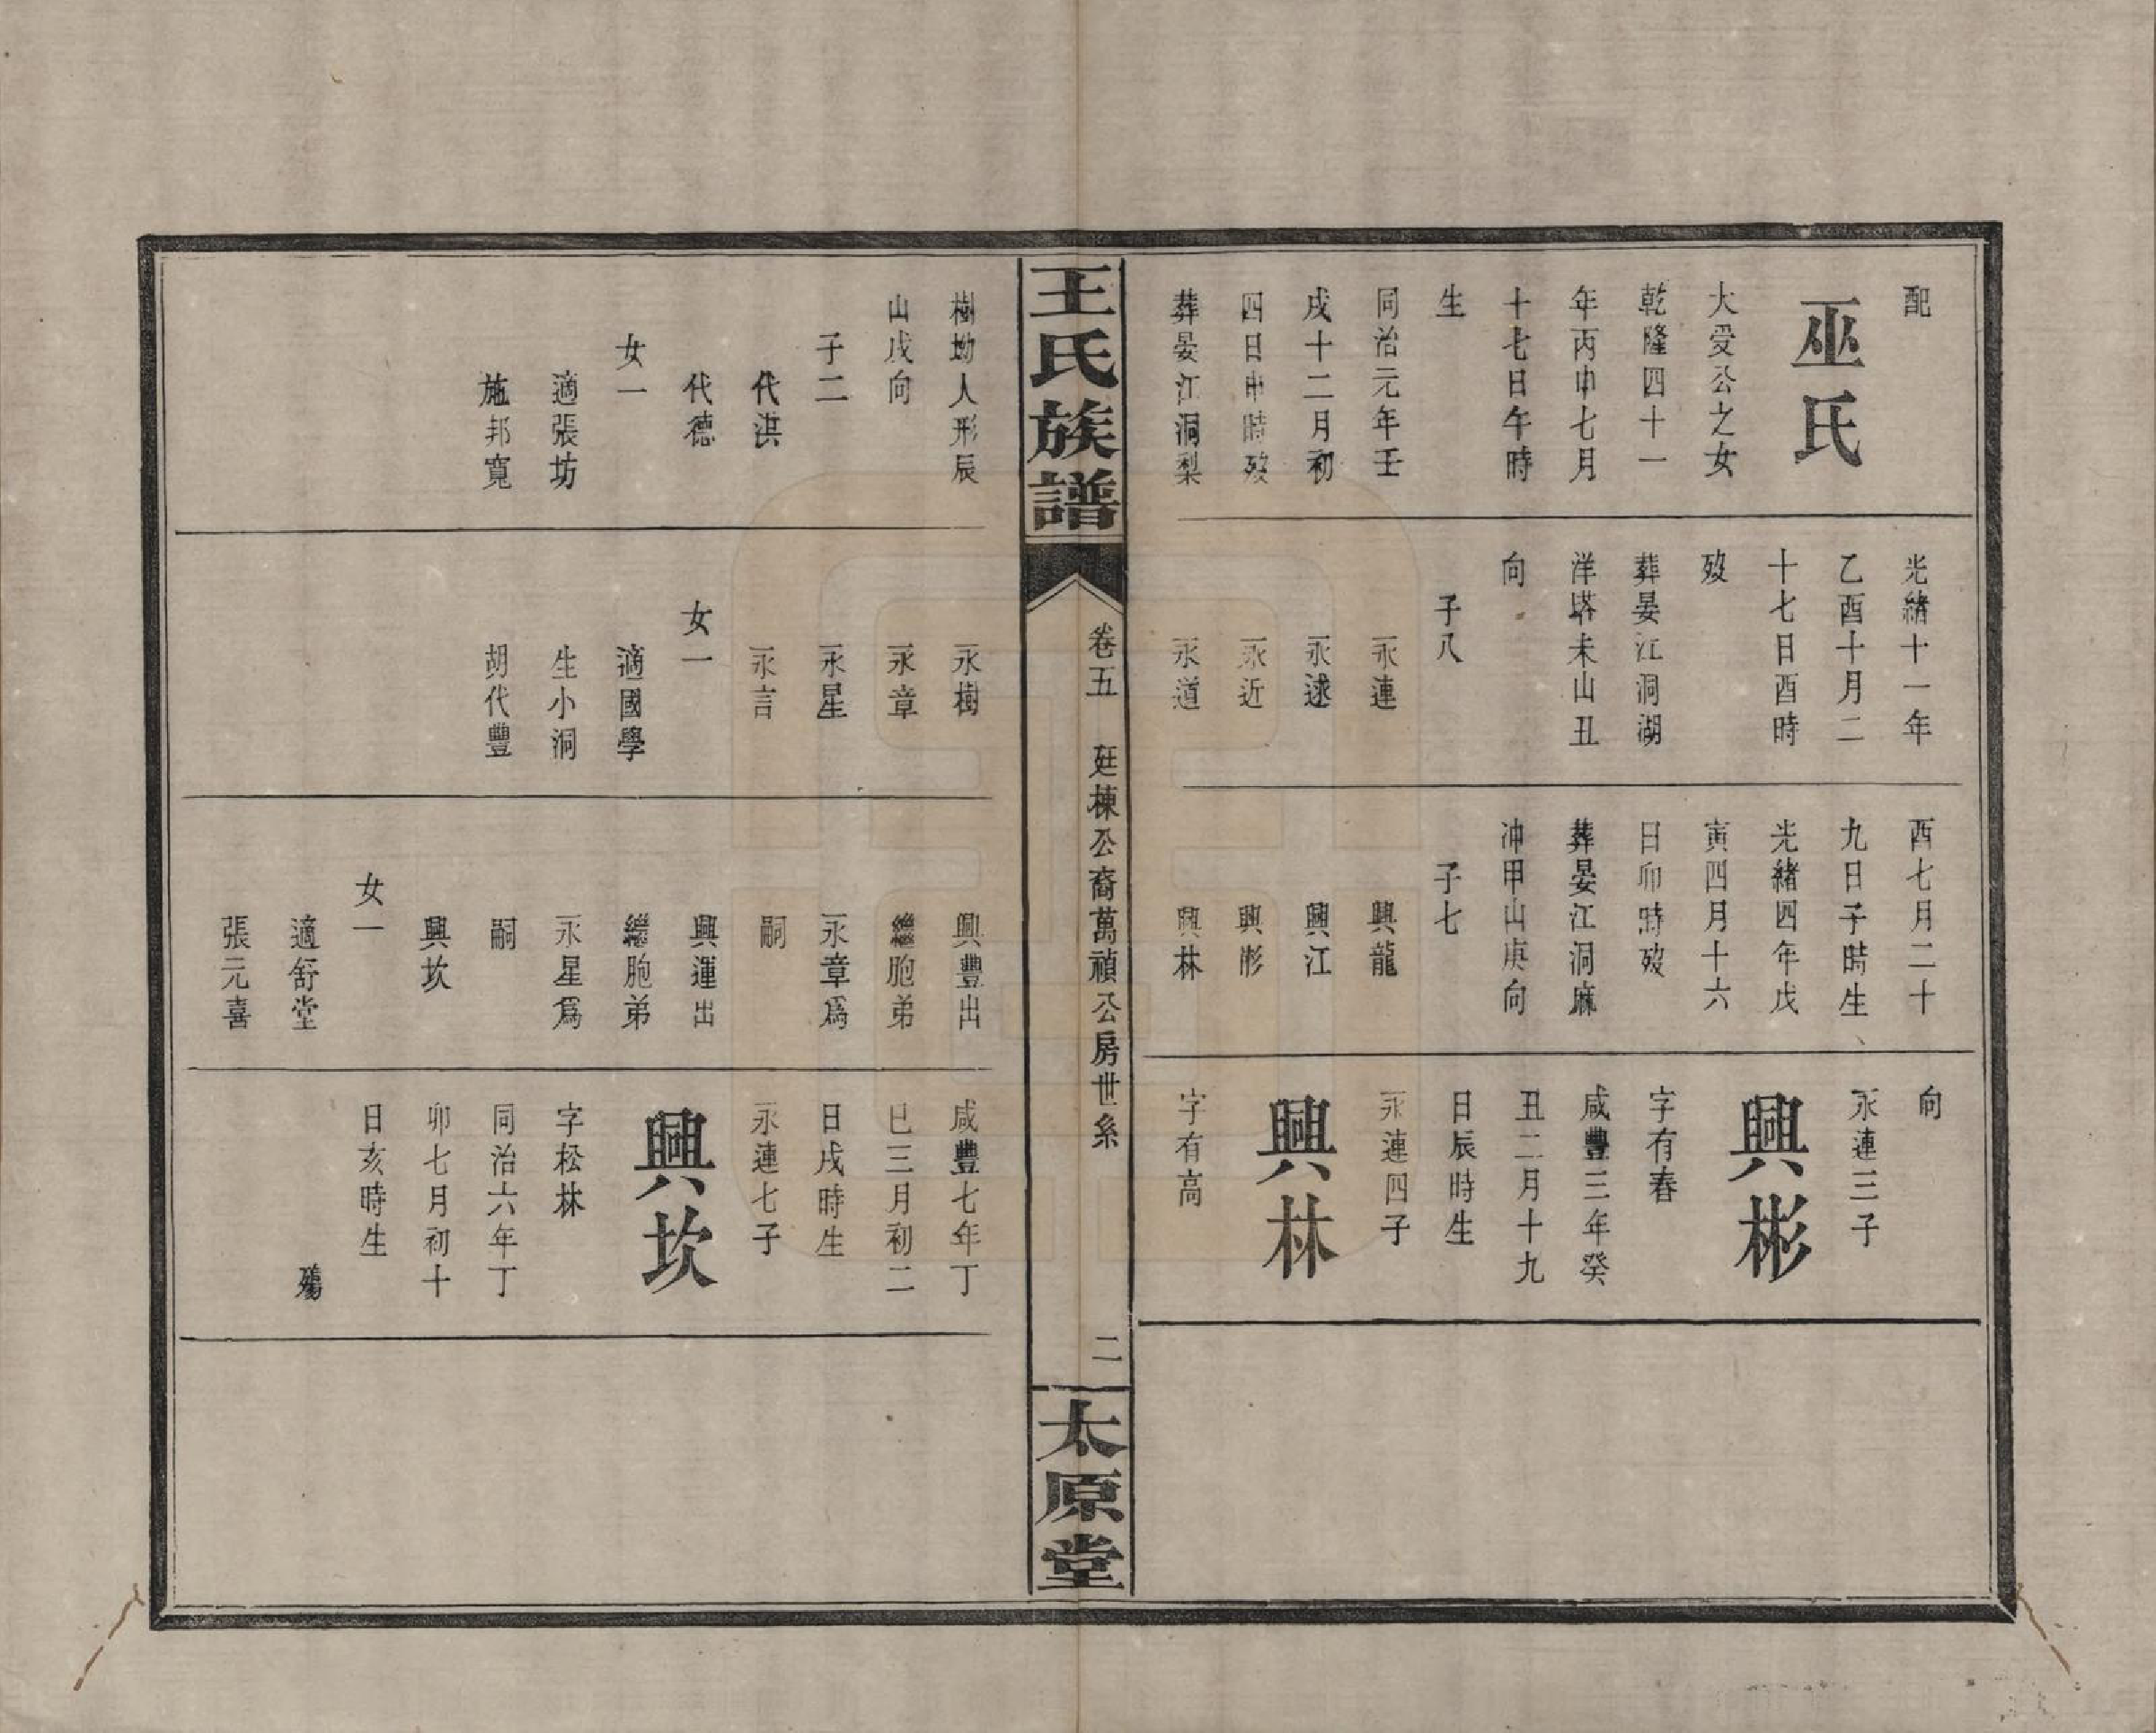 配
巫氏
大受公之女
乾隆四十一
年丙申七月
十七日午時
生
同治元年壬
戌十二月初
四日申時歿
葬晏江洞梨
光緒十一年
乙酉十月二
十七日酉時
歿
葬晏江洞湖
洋塔未山丑
向
子八
永連
永逑
永近
永道
酉七月二十
九日子時生
光緒四年戊
寅四月十六
日卯時歿
葬晏江洞麻
冲甲山庚向
子七
興龍
興江
興彬
興林
向
永連三子
興彬
字有春
咸豐三年癸
丑二月十九
日辰時生
永連四子
興林
字有高
王氏族譜
卷五
廷棟公裔萬禎公房世系
二
太原堂
樹坳人形辰
山戌向
子二
代淇
代德
女一
適張坊
施邦寬
永樹
永章
永星
永言
女一
適國學
生小洞
胡代豐
興豐出
繼胞弟
永章爲
嗣
興運出
繼胞弟
永星爲
嗣
興坎
女一
適舒堂
張元喜
咸豐七年丁
巳三月初二
日戌時生
永連七子
興坎
字松林
同治六年丁
卯七月初十
日亥時生
殤